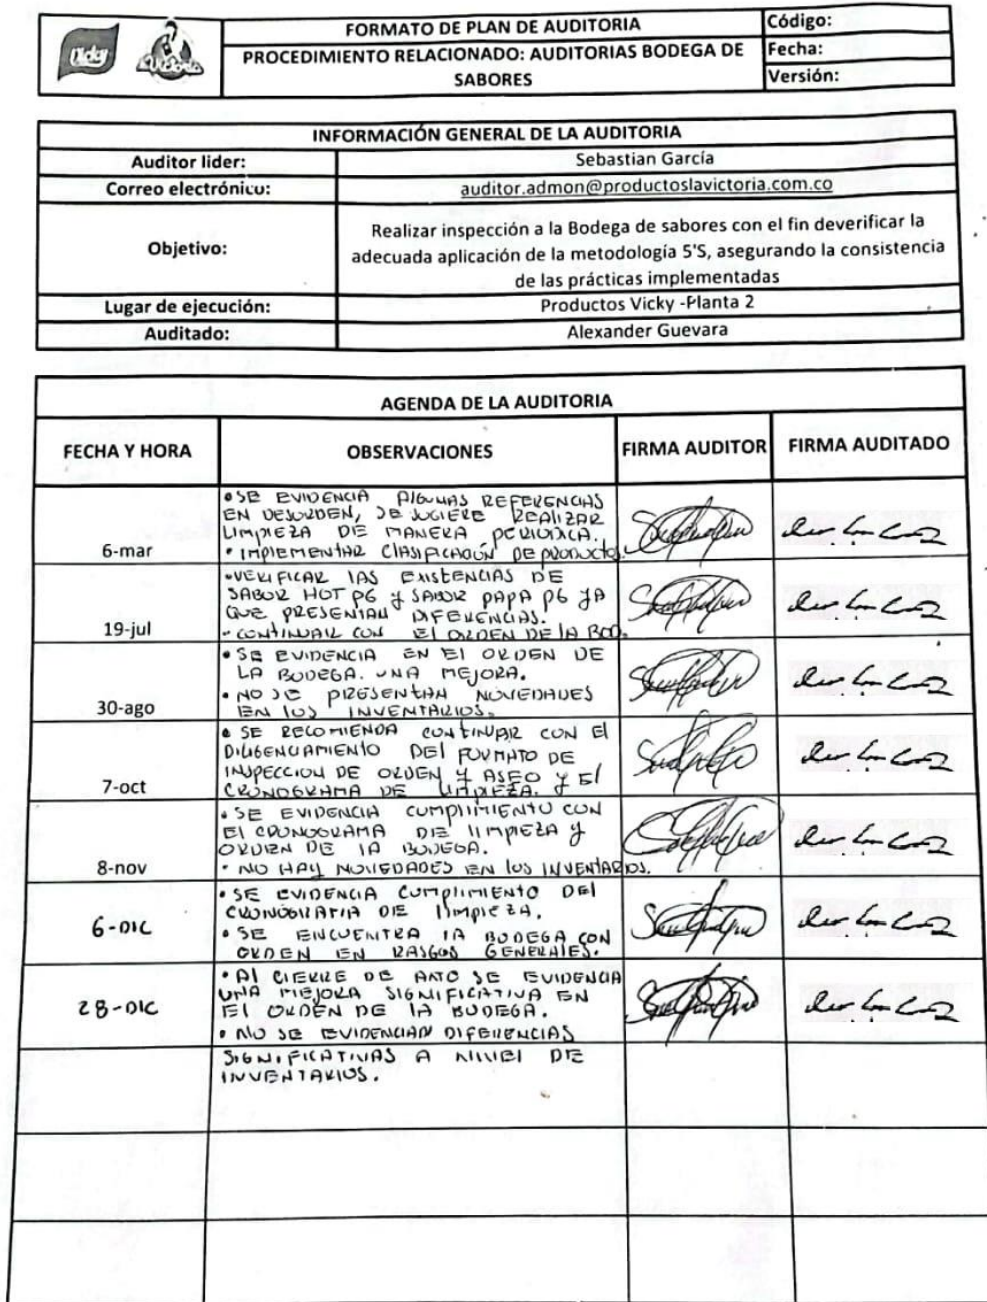 Vicky
Victoria
FORMATO DE PLAN DE AUDITORIA
PROCEDIMIENTO RELACIONADO: AUDITORIAS BODEGA DE
SABORES
Código:
Fecha:
Versión:
INFORMACIÓN GENERAL DE LA AUDITORIA
Auditor lider: Sebastian García
Correo electrónico: auditor.admon@productoslavictoria.com.co
Objetivo: Realizar inspección a la Bodega de sabores con el fin deverificar la
adecuada aplicación de la metodología 5'S, asegurando la consistencia
de las prácticas implementadas
Lugar de ejecución: Productos Vicky -Planta 2
Auditado: Alexander Guevara
AGENDA DE LA AUDITORIA
FECHA Y HORA OBSERVACIONES FIRMA AUDITOR FIRMA AUDITADO
6-mar
• SE EVIDENCIA AlGUNAS REFERENCIAS
EN DESORDEN, SE SUGIERE REALIZAR
LIMPIEZA DE MANERA PERIODICA.
• IMPLEMENTAR ClASIFICACIÓN DE PRODUCTO.
19-jul
• VERIFICAR lAS EXISTENCIAS DE
SABOR HOT PG y SABOR PAPA PG YA
QUE PRESENTAN DIFERENCIAS.
- CONTINUAR CON El ORDEN DE lA BOD.
30-ago
• SE EVIDENCIA EN El ORDEN DE
LA BODEGA. UNA MEJORA.
• NO SE PRESENTAN NOVEDADES
EN lOS INVENTARIOS.
7-oct
• SE RECOMIENDA CONTINUAR CON El
DILIGENCIAMIENTO DEl FORMATO DE
INSPECCION DE ORDEN Y ASEO Y El
CRONOGRAMA DE LIMPIEZA.
8-nov
• SE EVIDENCIA CUMPlIMIENTO CON
El CRONOGRAMA DE lIMPIEZA y
ORDEN DE lA BODEGA.
• NO HAY NOVEDADES EN lOS INVENTARIOS.
6-DIC
• SE EVIDENCIA CUMPlIMIENTO DEl
CRONOGRAMA DE lIMPIEZA.
• SE ENCUENTRA lA BODEGA CON
ORDEN EN RASGOS GENERAlES.
28-DIC
• Al CIERRE DE AÑO SE EVIDENCIA
UNA MEJORA SIGNIFICATIVA EN
El ORDEN DE lA BODEGA.
• NO SE EVIDENCIAN DIFERENCIAS
SIGNIFICATIVAS A NIVEl DE
INVENTARIOS.